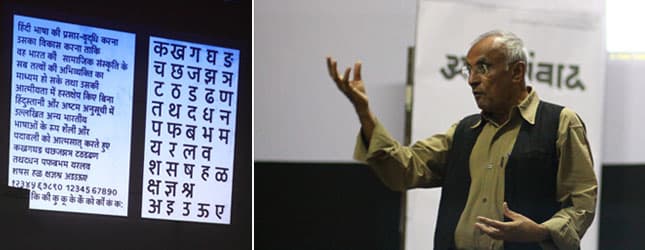 हिंदी भाषा की प्रसार-वृद्धि करना
उसका विकास करना ताकि
वह भारत की सामाजिक संस्कृति के
सब तत्वों की अभिव्यक्ति का
माध्यम हो सके तथा उसकी
आत्मीयता में हस्तक्षेप किए बिना
हिंदुस्तानी और अष्टम अनुसूची में
उल्लखित अन्य भारतीय
भाषाओं के रूप शैली और
पदावली को आत्मसात् करते हुए
कखगघङ चछजझञ टठडढण
तथदधन पफबभम यरलव
शषस हळ क्षज्ञश्र अइउऊए
१२३४५६७८९० 1234567890
कि की कु कू के कें को कों कं कः
कखगघङ
चछजझञ
टठडढण
तथदधन
पफबभम
यरलव
शषसहळ
क्षज्ञश्र
अइउऊए